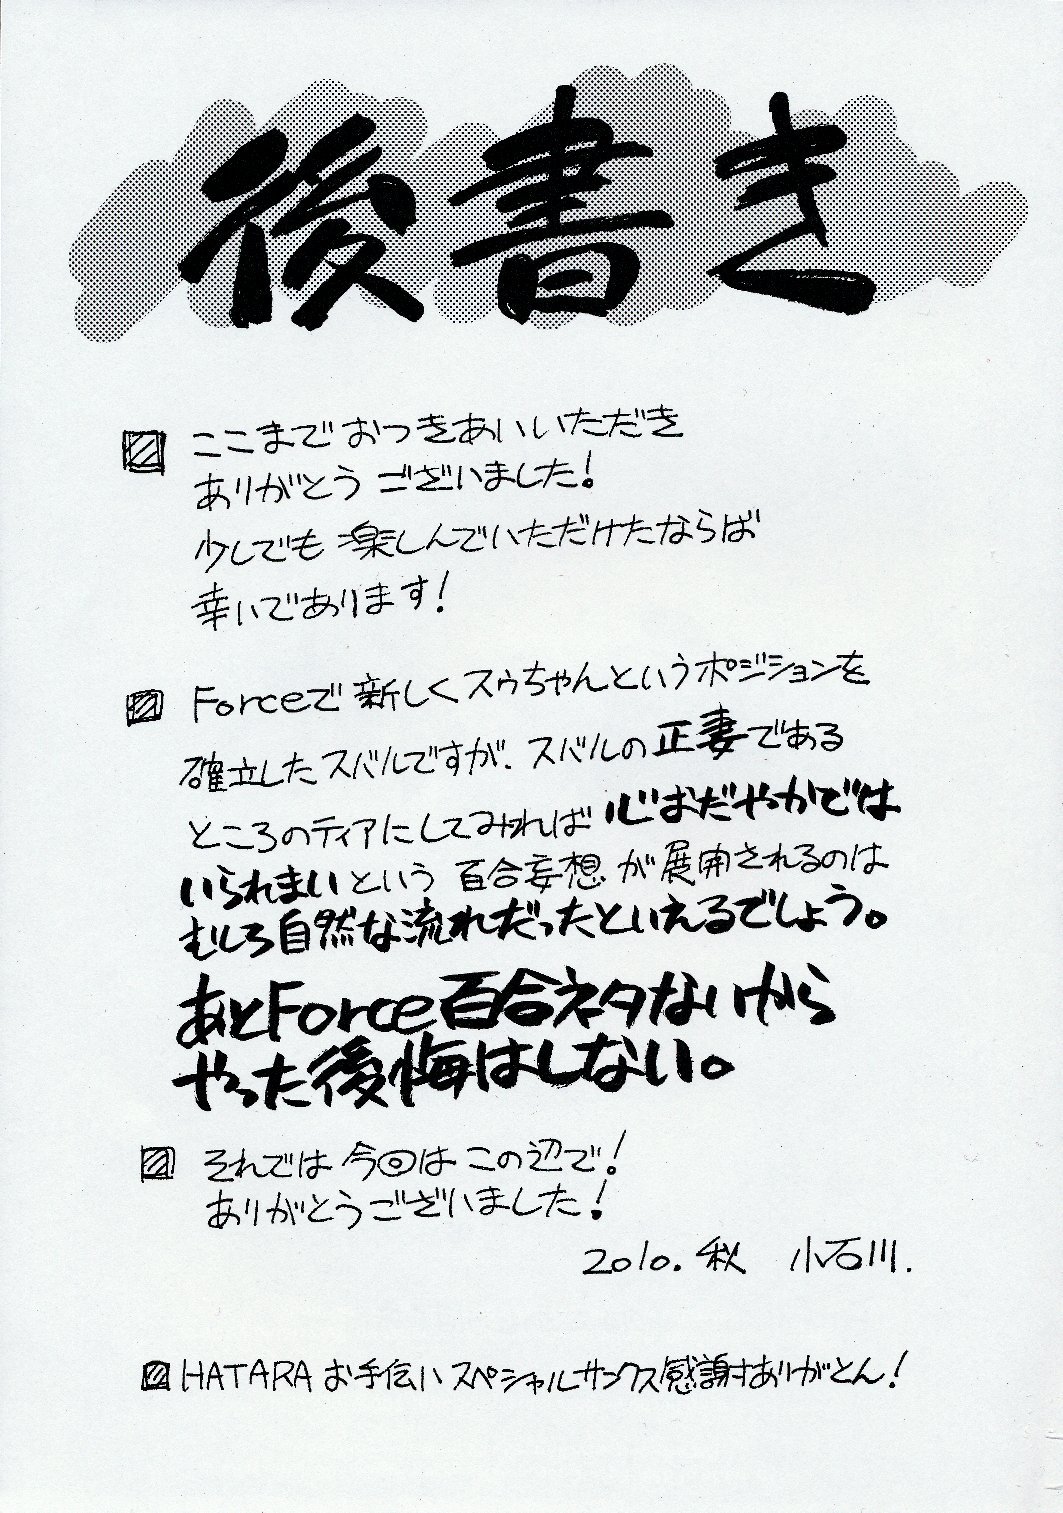 後書き
ここまでおつきあいいただき
ありがとうございました!
少しでも楽しんでいただけたならば
幸いであります!
Forceで新しくスゥちゃんというポジションを
確立したスバルですが、スバルの正妻である
ところのティアにしてみれば心おだやかでは
いられまいという百合妄想が展開されるのは
むしろ自然な流れだったといえるでしょう。
あとForce百合ネタないから
やった後悔はしない。
それでは今回はこの辺で!
ありがとうございました!
2010.秋 小石川.
HATARAお手伝いスペシャルサンクス感謝ありがとん!